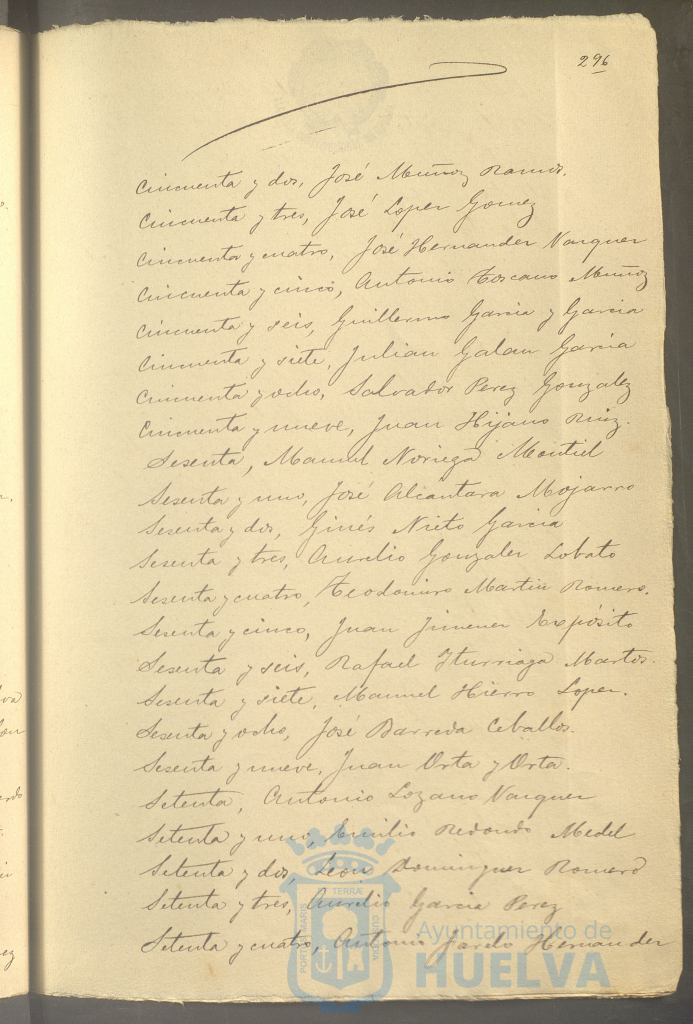 296
Cincuenta y dos, José Muñoz Ramos.
Cincuenta y tres, José Lopez Gomez
Cincuenta y cuatro, José Hernandez Vazquez
Cincuenta y cinco, Antonio Toscano Muñoz
Cincuenta y seis, Guillermo Garcia y Garcia
Cincuenta y siete, Julian Galan Garcia
Cincuenta y ocho, Salvador Perez Gonzalez
Cincuenta y nueve, Juan Hijano Ruiz.
Sesenta, Manuel Noriega Montiel
Sesenta y uno, José Alcantara Mojarro
Sesenta y dos, Ginés Nieto Garcia
Sesenta y tres, Aurelio Gonzalez Lobato
Sesenta y cuatro, Teodomiro Martin Romero.
Sesenta y cinco, Juan Jimenez Expósito
Sesenta y seis, Rafael Yturriaga Martos.
Sesenta y siete, Manuel Hierro Lopez.
Sesenta y ocho, José Barreda Ceballos.
Sesenta y nueve, Juan Orta y Orta.
Setenta, Antonio Lozano Vazquez
Setenta y uno, Emilio Redondo Medel
Setenta y dos, Leon Dominguez Romero
Setenta y tres, Aurelio Garcia Perez
Setenta y cuatro, Antonio Hernandez
PORTUS MARIS
TERRÆ
CUSTODIA
Ayuntamiento de
HUELVA